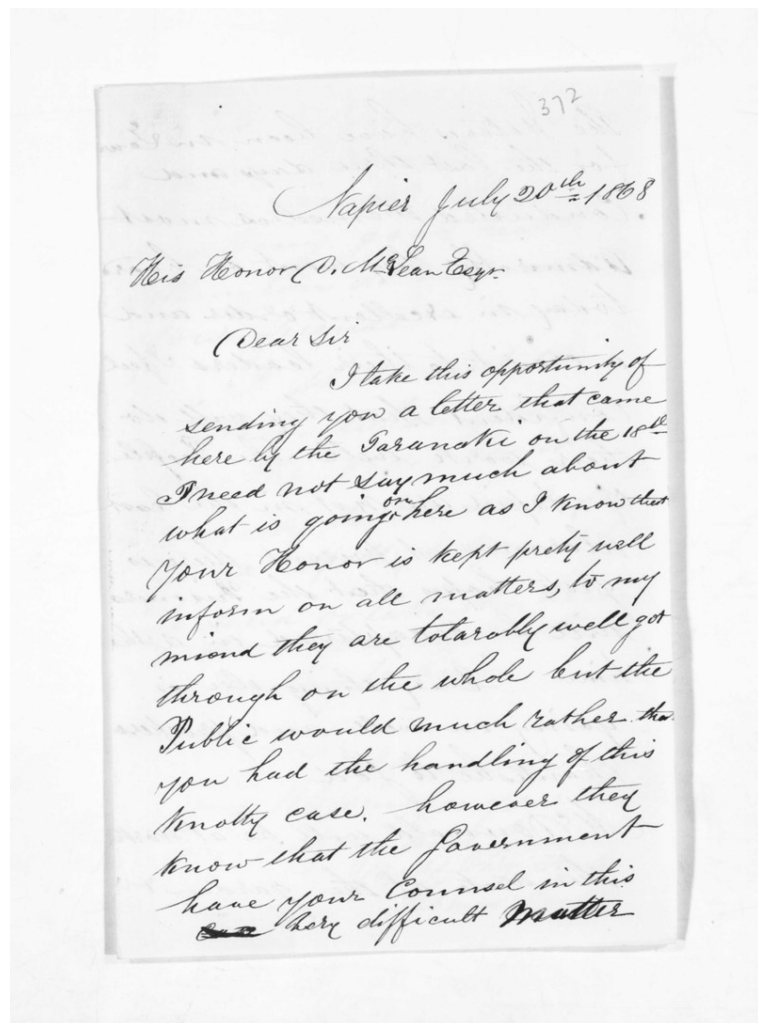 372
Napier July 20th 1868
His Honor D. McLean Esqr.
Dear Sir
I take this opportunity of
sending you a letter that came
here by the Taranaki on the 18th
I need not say much about
what is going on here as I know that
Your Honor is kept prety well
inform on all matters, to my
miond they are tolarobly well got
through on the whole but the
Public would much rather that
you had the handling of this
Knotty case. however they
know that the Government
have your Counsel in this
very difficult Matter